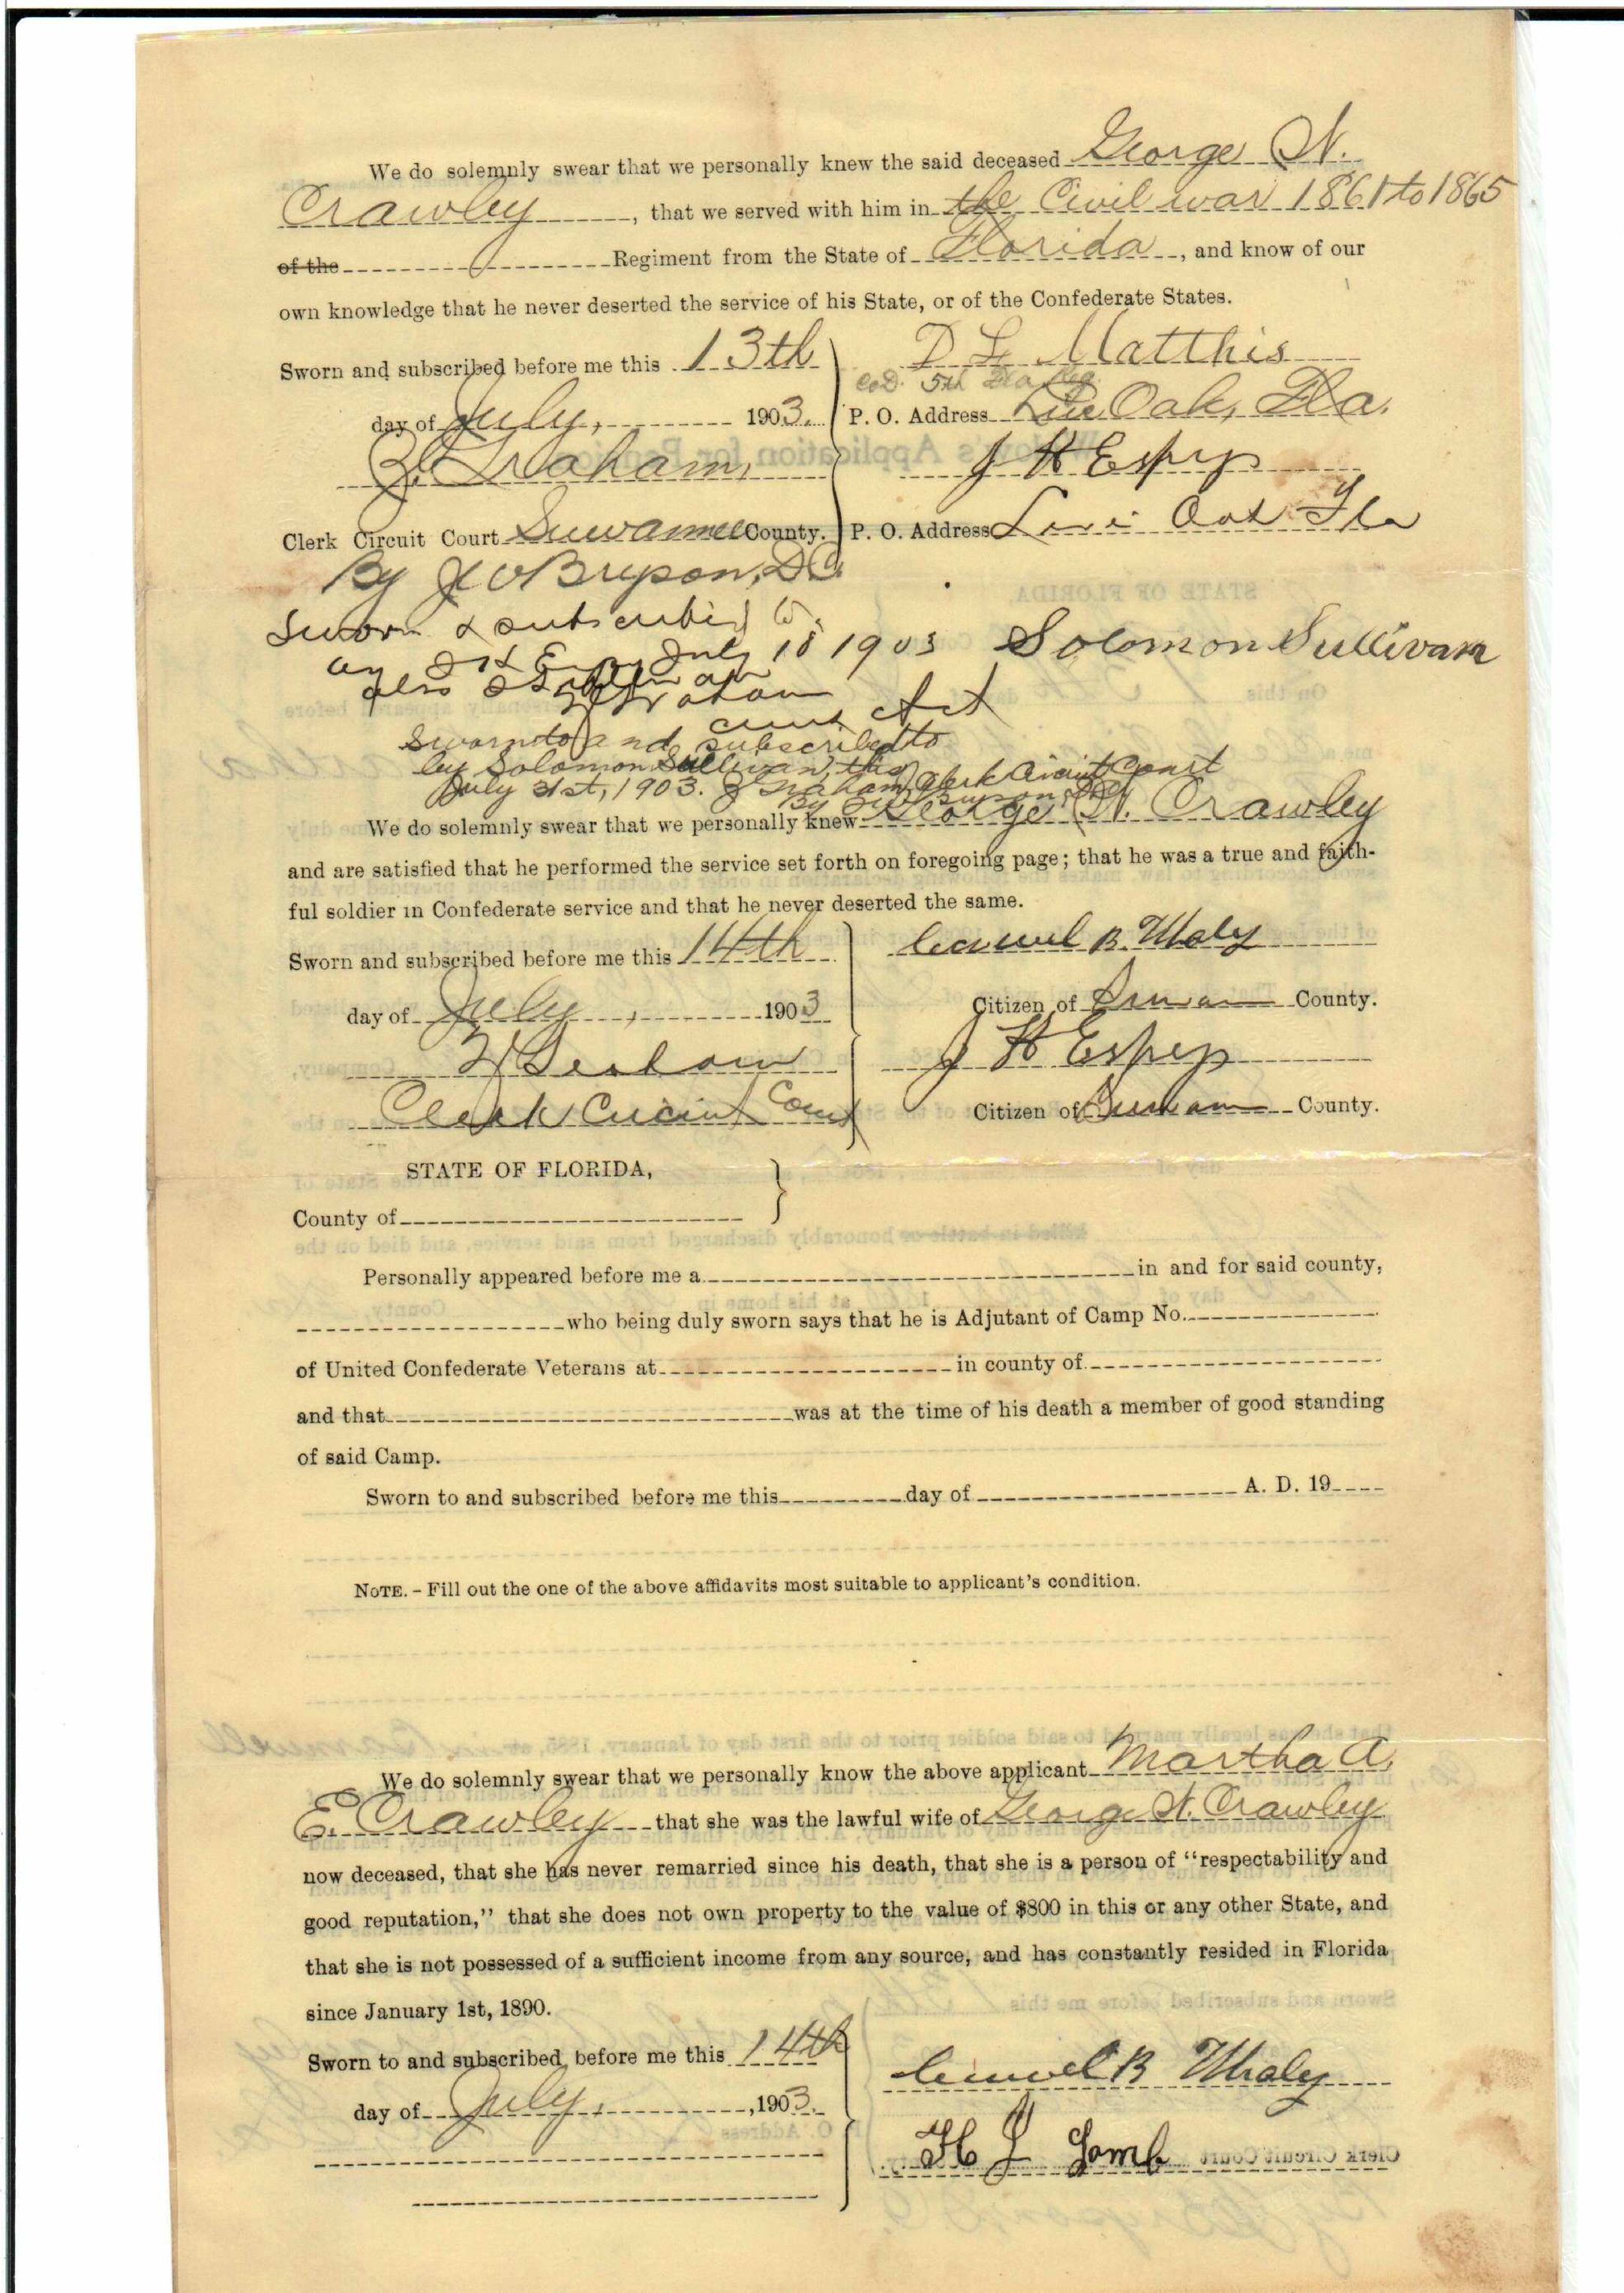 We do solemnly swear that we personally knew the said deceased George W.
Crawley, that we served with him in the Civil war 1861 to 1865
of the Regiment from the State of Florida, and know of our
own knowledge that he never deserted the service of his State, or of the Confederate States.
Sworn and subscribed before me this 13th
day of July, 1903.
Graham,
Clerk Circuit Court Suwannee County.
By Bryson, D.C.
D L Matthis
Co D. 5th Fla Reg.
P. O. Address Live Oak, Fla.
J H Espy
P. O. Address Live Oak Fla
Sworn & subscribed to
by J H Espy July 18 1903
also Graham
Clerk
Solomon Sullivan
Sworn to and subscribed to
by Solomon Sullivan, this
July 31st, 1903. Graham, Clerk Circuit Court
By Bryson, D.C.
We do solemnly swear that we personally knew George W. Crawley
and are satisfied that he performed the service set forth on foregoing page; that he was a true and faith-
ful soldier in Confederate service and that he never deserted the same.
Sworn and subscribed before me this 14th
day of July, 1903
Graham
Clerk Circuit Court
Lemuel B. Whaley
Citizen of Suwannee County.
J H Espy
Citizen of Suwannee County.
STATE OF FLORIDA,
County of
Personally appeared before me a in and for said county,
who being duly sworn says that he is Adjutant of Camp No.
of United Confederate Veterans at in county of
and that was at the time of his death a member of good standing
of said Camp.
Sworn to and subscribed before me this day of A. D. 19
NOTE. - Fill out the one of the above affidavits most suitable to applicant's condition.
We do solemnly swear that we personally know the above applicant Martha A.
E. Crawley that she was the lawful wife of George W. Crawley
now deceased, that she has never remarried since his death, that she is a person of "respectability and
good reputation," that she does not own property to the value of $800 in this or any other State, and
that she is not possessed of a sufficient income from any source, and has constantly resided in Florida
since January 1st, 1890.
Sworn to and subscribed before me this 14th
day of July, 1903.
Lemuel B Whaley
H L Lamb